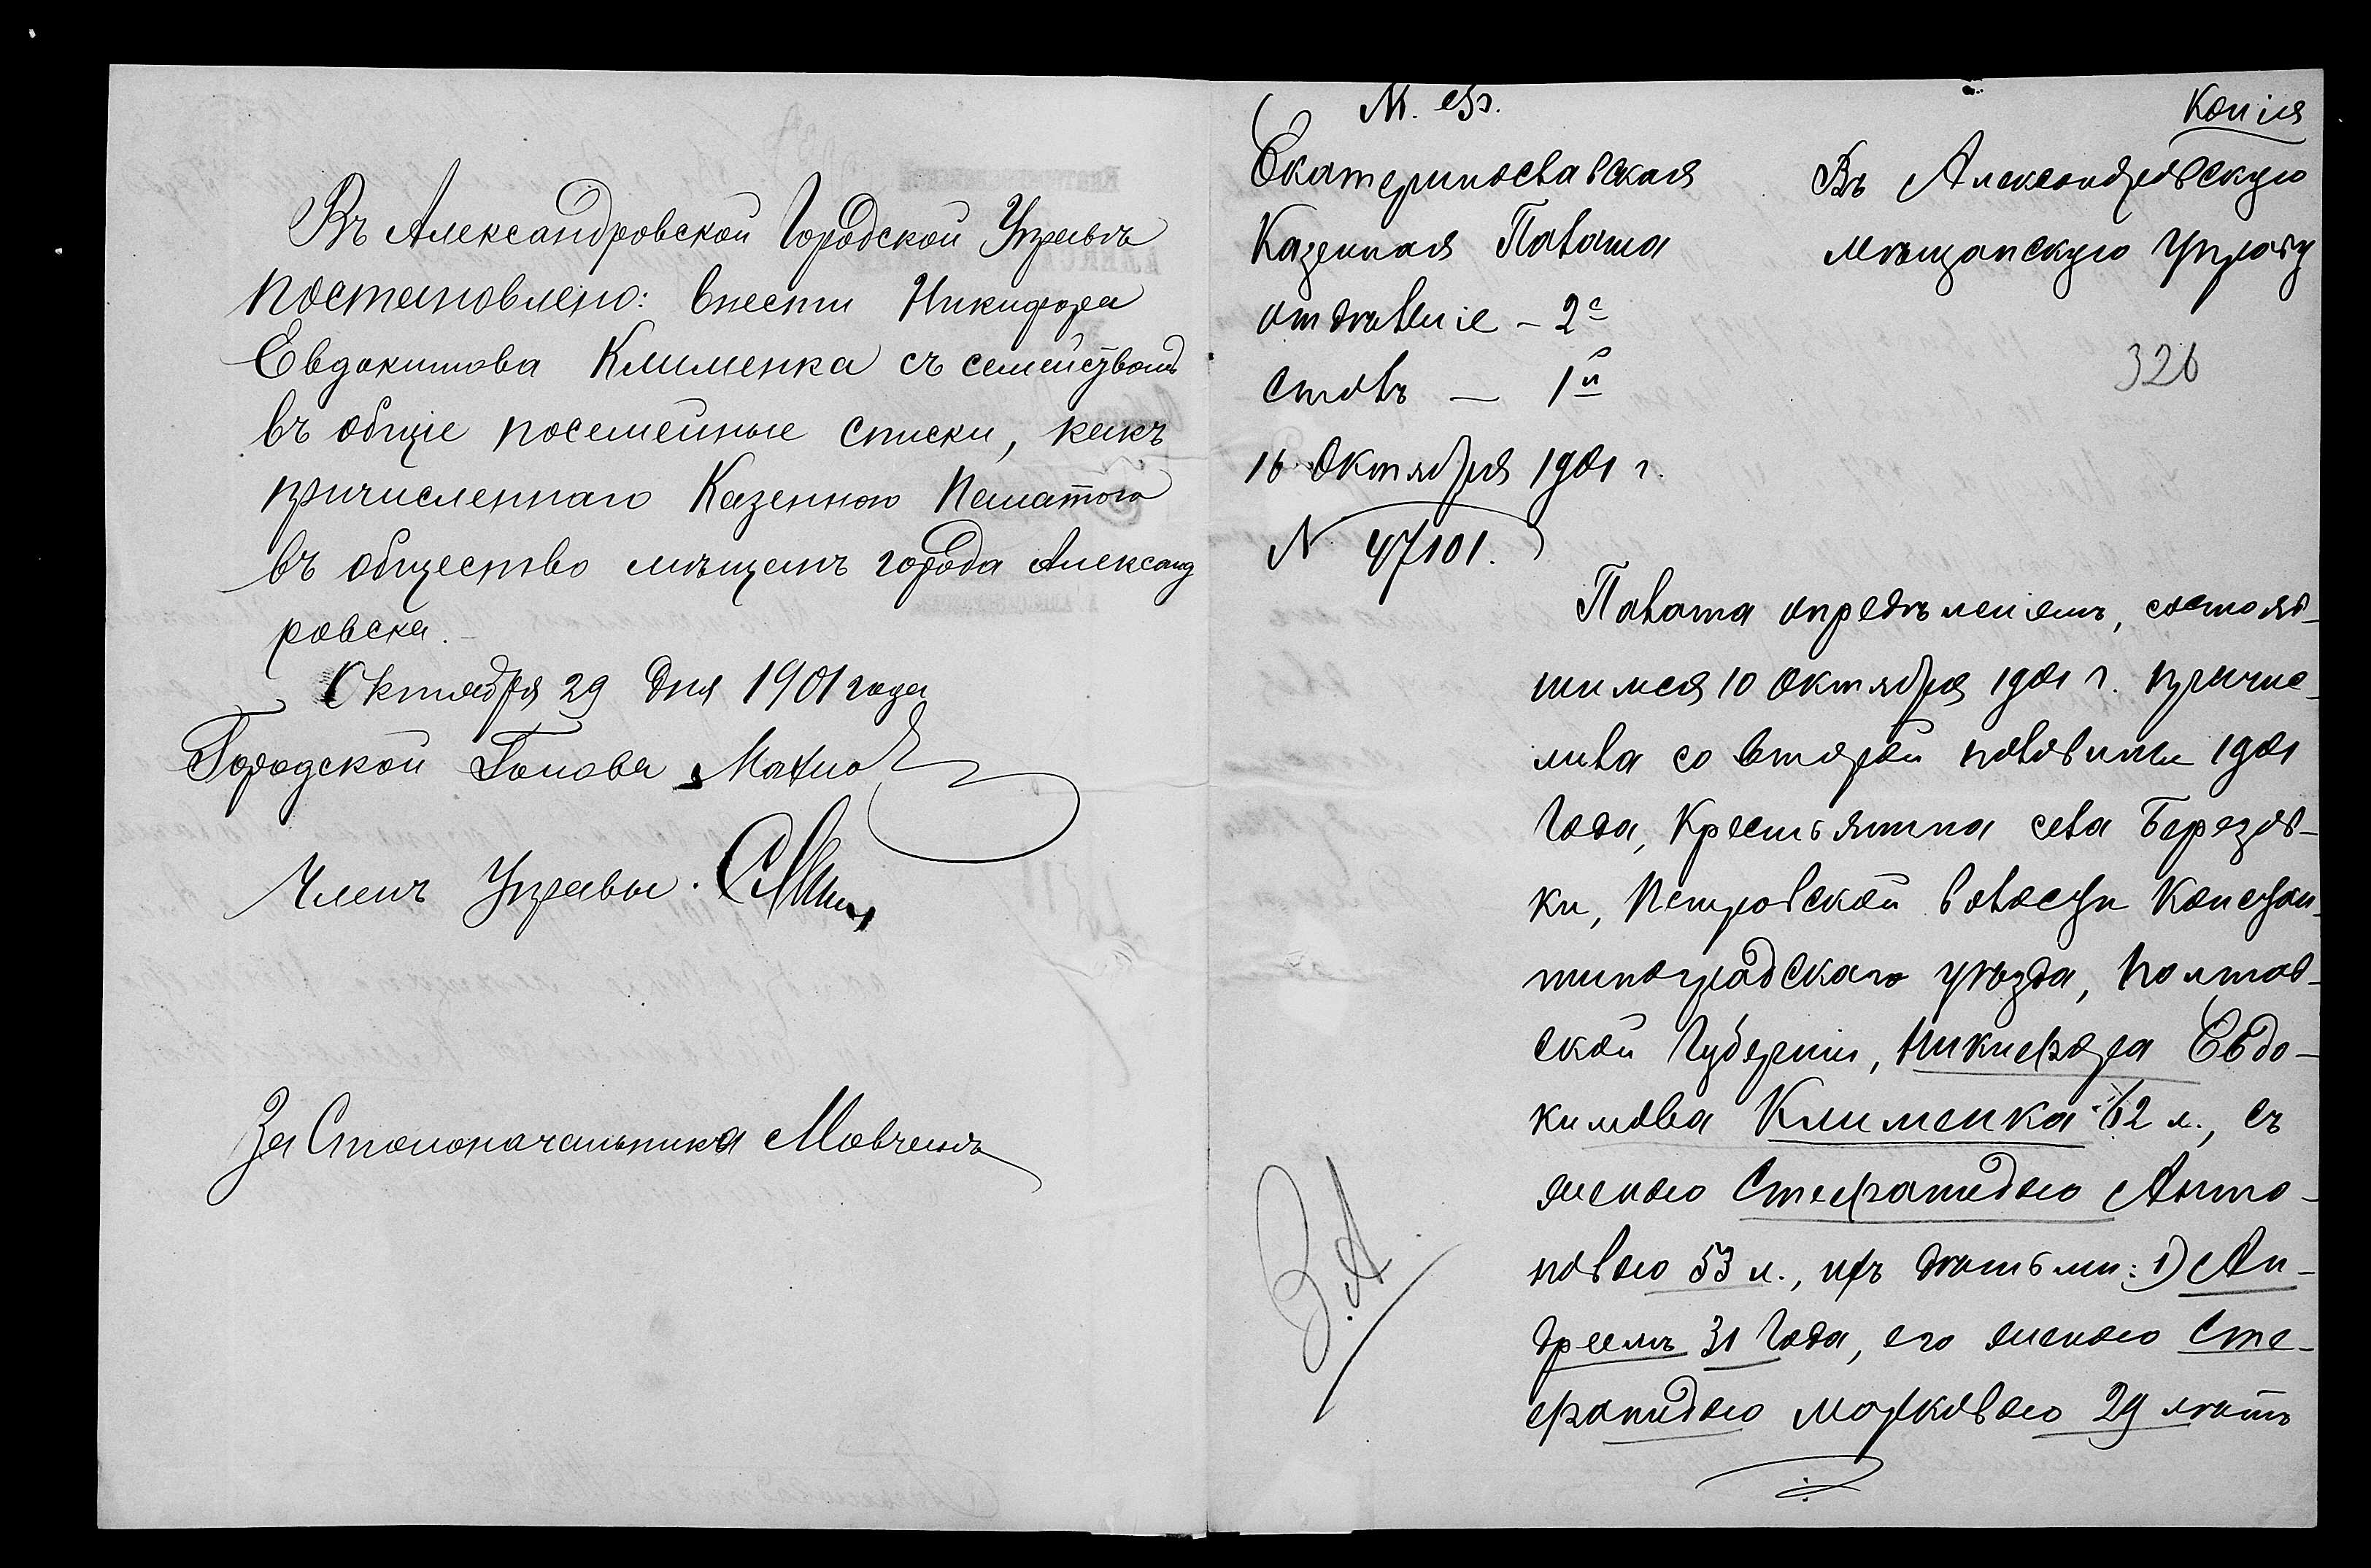 Въ Александровской Городской Управѣ
постановлено: внести Никифора
Евдокимова Клименка съ семействомъ
въ общіе посемейные списки, какъ
причисленнаго Казенною Палатою
въ общество мѣщанъ города Александ
ровска.
Октября 29 дня 1901 года
Городской Голова Махно
Членъ Управы.
За Столоначальника Мовчанъ
М. Ф.
Копія
Екатеринославская
Казенная Палата
отдѣленіе – 2е
столъ — 1й
16 Октября 1901 г.
N 47101.
Въ Александровскую
мѣщанскую Управу
326
Палата опредѣленіемъ, состояв-
шимся 10 Октября 1901 г. причис-
лила со второй половины 1901
года, Крестьянина села Березов-
ки, Петровской волости Констан-
тиноградскаго уѣзда, Полтав-
ской Губерніи, Никифора Евдо-
кимова Клименка 62 л., съ
женою Стефанидою Анто-
новою 53 л., ихъ дѣтьми: 1) Ан-
дреемъ 31 года, его женою Сте-
фанидою Марковою 29 лѣтъ
З.А